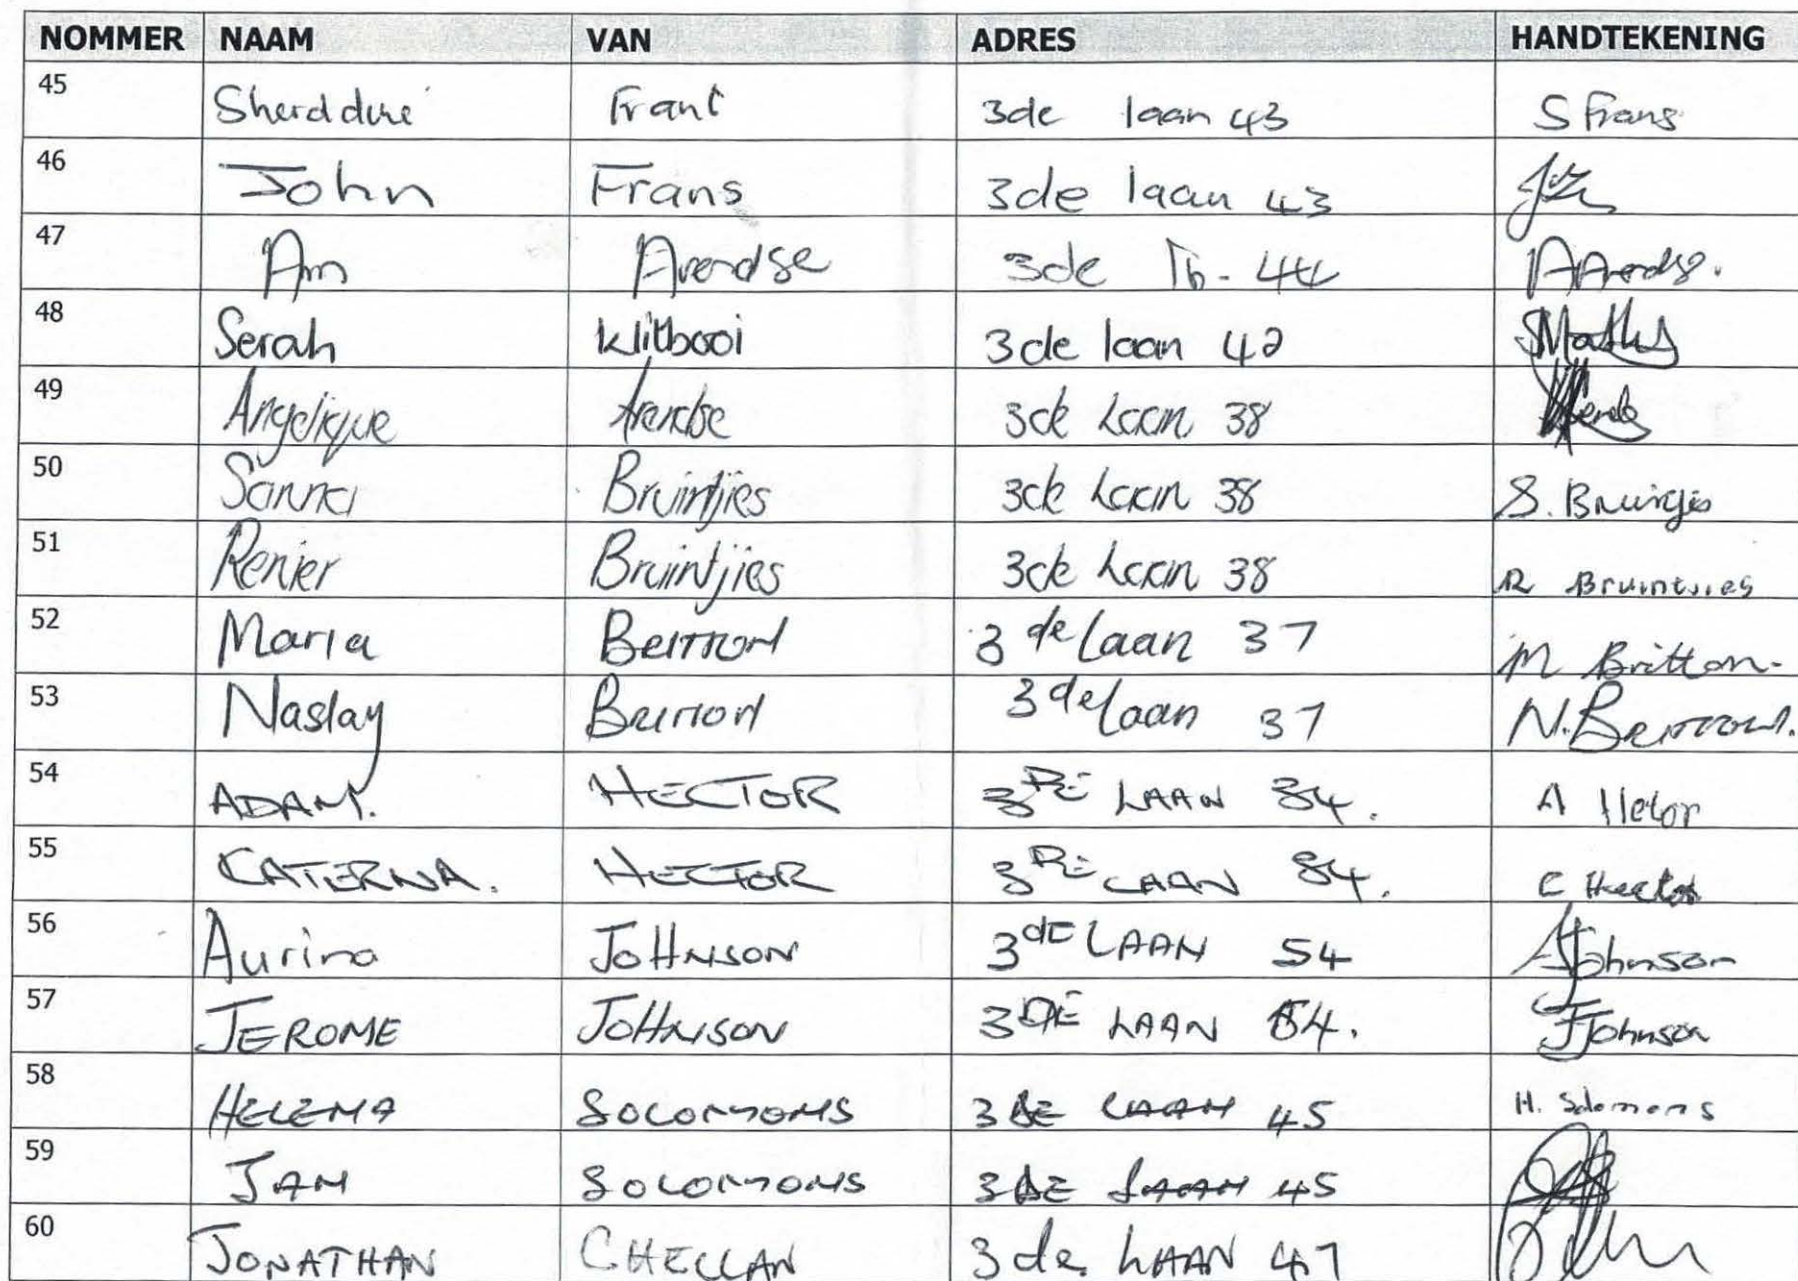 NOMMER NAAM VAN ADRES HANDTEKENING
45 Frant 3de laan 43 S Frans
46 John Frans 3de laan 43
47 Am Arendse 3de 44 A Arendse.
48 Serah klitbooi 3de laan 42
49 Angelique Arendse 3de Laan 38
50 Sanna Bruintjies 3de Laan 38 S. Bruintjies
51 Renier Bruintjies 3de Laan 38 R Bruintjies
52 Maria 3de laan 37 M Britton-
53 Naslay 3de laan 37
54 ADAM. HECTOR 3DE LAAN 84. A Hector
55 CATERNA. HECTOR 3DE LAAN 84. C Hector
56 Aurina JOHNSON 3de LAAN 54 A Johnson
57 JEROME JOHNSON 3DE LAAN 54. J Johnson
58 HELENA SOLOMONS 3DE LAAN 45 H. Solomons
59 JAN SOLOMONS 3DE LAAN 45
60 JONATHAN CHELLAN 3de LAAN 47